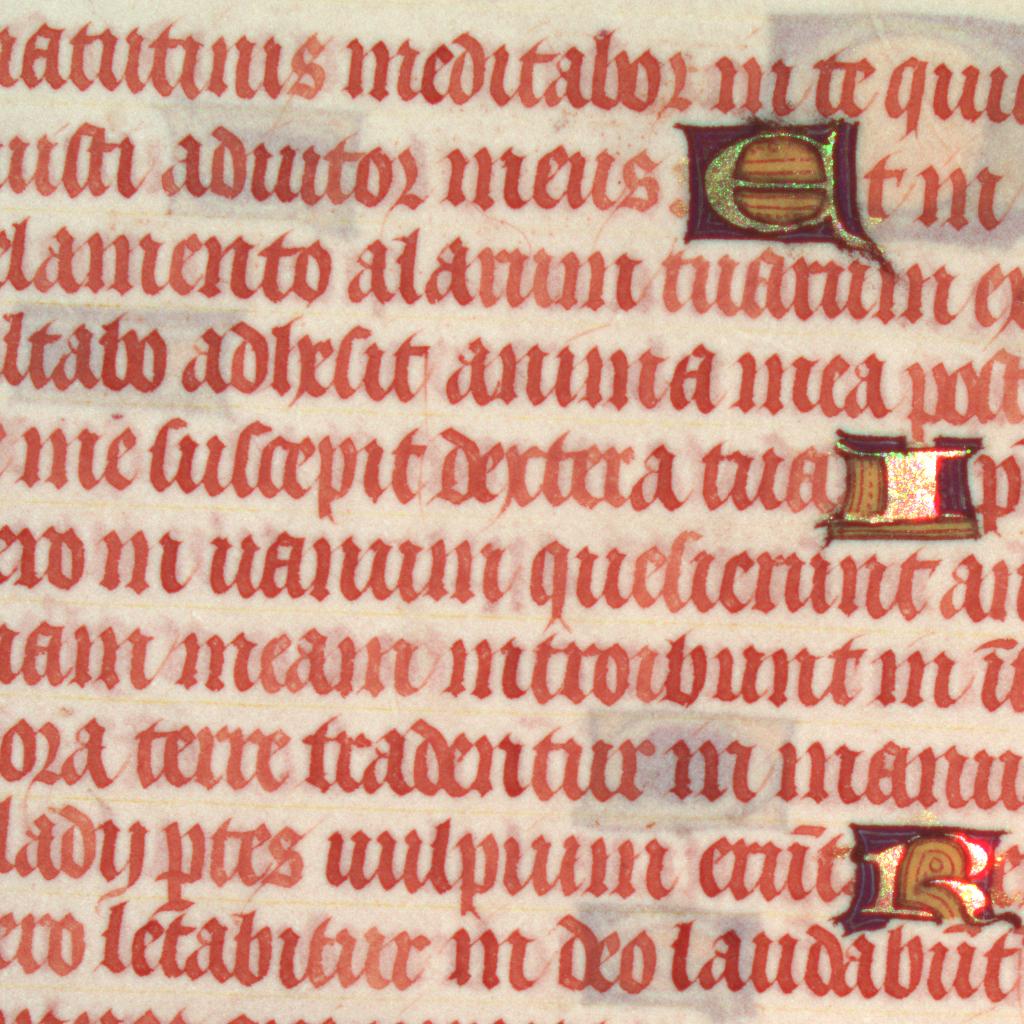 matutinis meditabor in te quia
fuisti adiutor meus Et in
velamento alarum tuarum ex
ultabo adhesit anima mea post
me suscepit dextera tua Ip
ero in uanum quesierunt an
mam meam introibunt in
ora terre tradentur in manu
gladij ptes uulpium erūt Re
ero letabitur in deo laudabūt